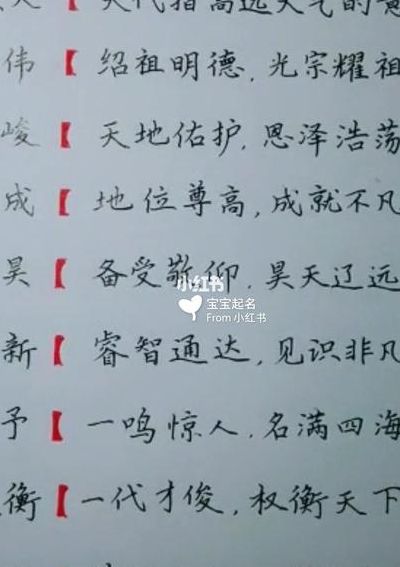 天代指高远大气的意
伟【绍祖明德,光宗耀祖
峻【天地佑护,恩泽浩荡
成【地位尊高,成就不凡
昊【备受敬仰,昊天辽远
小红书
宝宝起名
From 小红书
新【睿智通达,见识非凡
予【一鸣惊人,名满四海
衡【一代才俊,权衡天下